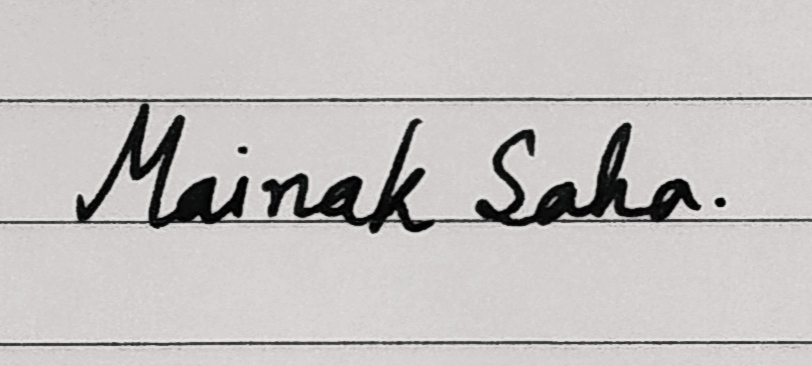 Mainak Saha.